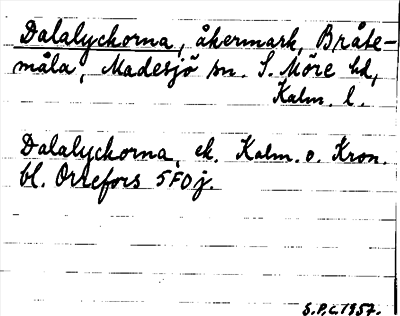 Dalalyckorna, åkermark, Bråte-
måla, Madesjö sn. S. Möre hd,
Kalm. l.
Dalalyckorna, ek. Kalm. o. Kron.
bl. Orrefors 5F0j.
S.P.C. 1957.